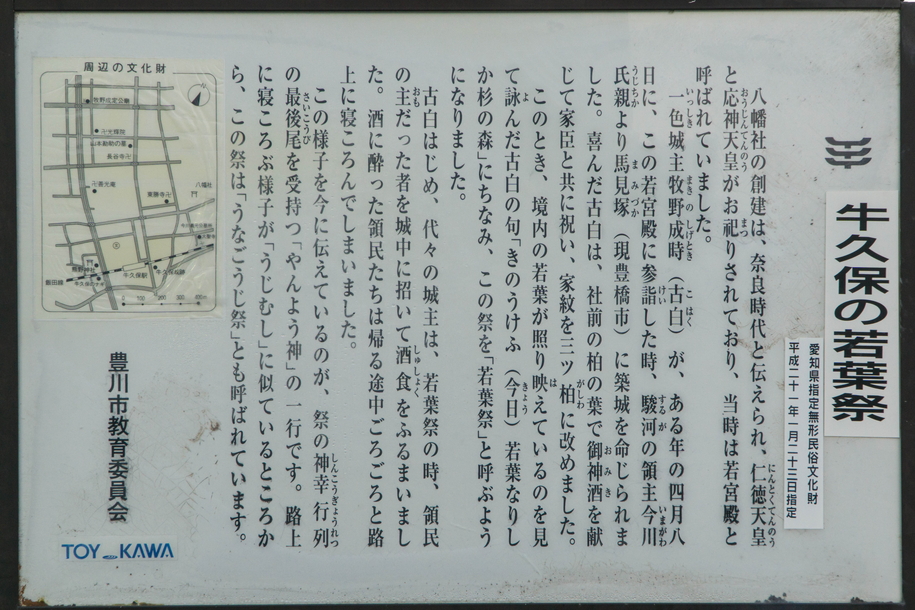 牛久保の若葉祭
愛知県指定無形民俗文化財
平成二十一年一月二十三日指定
八幡社の創建は、奈良時代と伝えられ、仁徳天皇
と応神天皇がお祀りされており、当時は若宮殿と
呼ばれていました。
一色城主牧野成時（古白）が、ある年の四月八
日に、この若宮殿に参詣した時、駿河の領主今川
氏親より馬見塚（現豊橋市）に築城を命じられま
した。喜んだ古白は、社前の柏の葉で御神酒を献
じて家臣と共に祝い、家紋を三ツ柏に改めました。
このとき、境内の若葉が照り映えているのを見
て詠んだ古白の句「きのうけふ（今日）若葉なりし
か杉の森」にちなみ、この祭を「若葉祭」と呼ぶよう
になりました。
古白はじめ、代々の城主は、若葉祭の時、領民
の主だった者を城中に招いて酒食をふるまいまし
た。酒に酔った領民たちは帰る途中ごろごろと路
上に寝ころんでしまいました。
この様子を今に伝えているのが、祭の神幸行列
の最後尾を受持つ「やんよう神」の一行です。路上
に寝ころぶ様子が「うじむし」に似ているところか
ら、この祭は「うなごうじ祭」とも呼ばれています。
豊川市教育委員会
TOYOKAWA
周辺の文化財
牧野成定公廟
卍光輝院
山本勘助の墓
長谷寺卍
卍養光庵
東勝寺卍
八幡社
熊野神社
牛久保駅
牛久保城跡
飯田線
0 100 200 300m